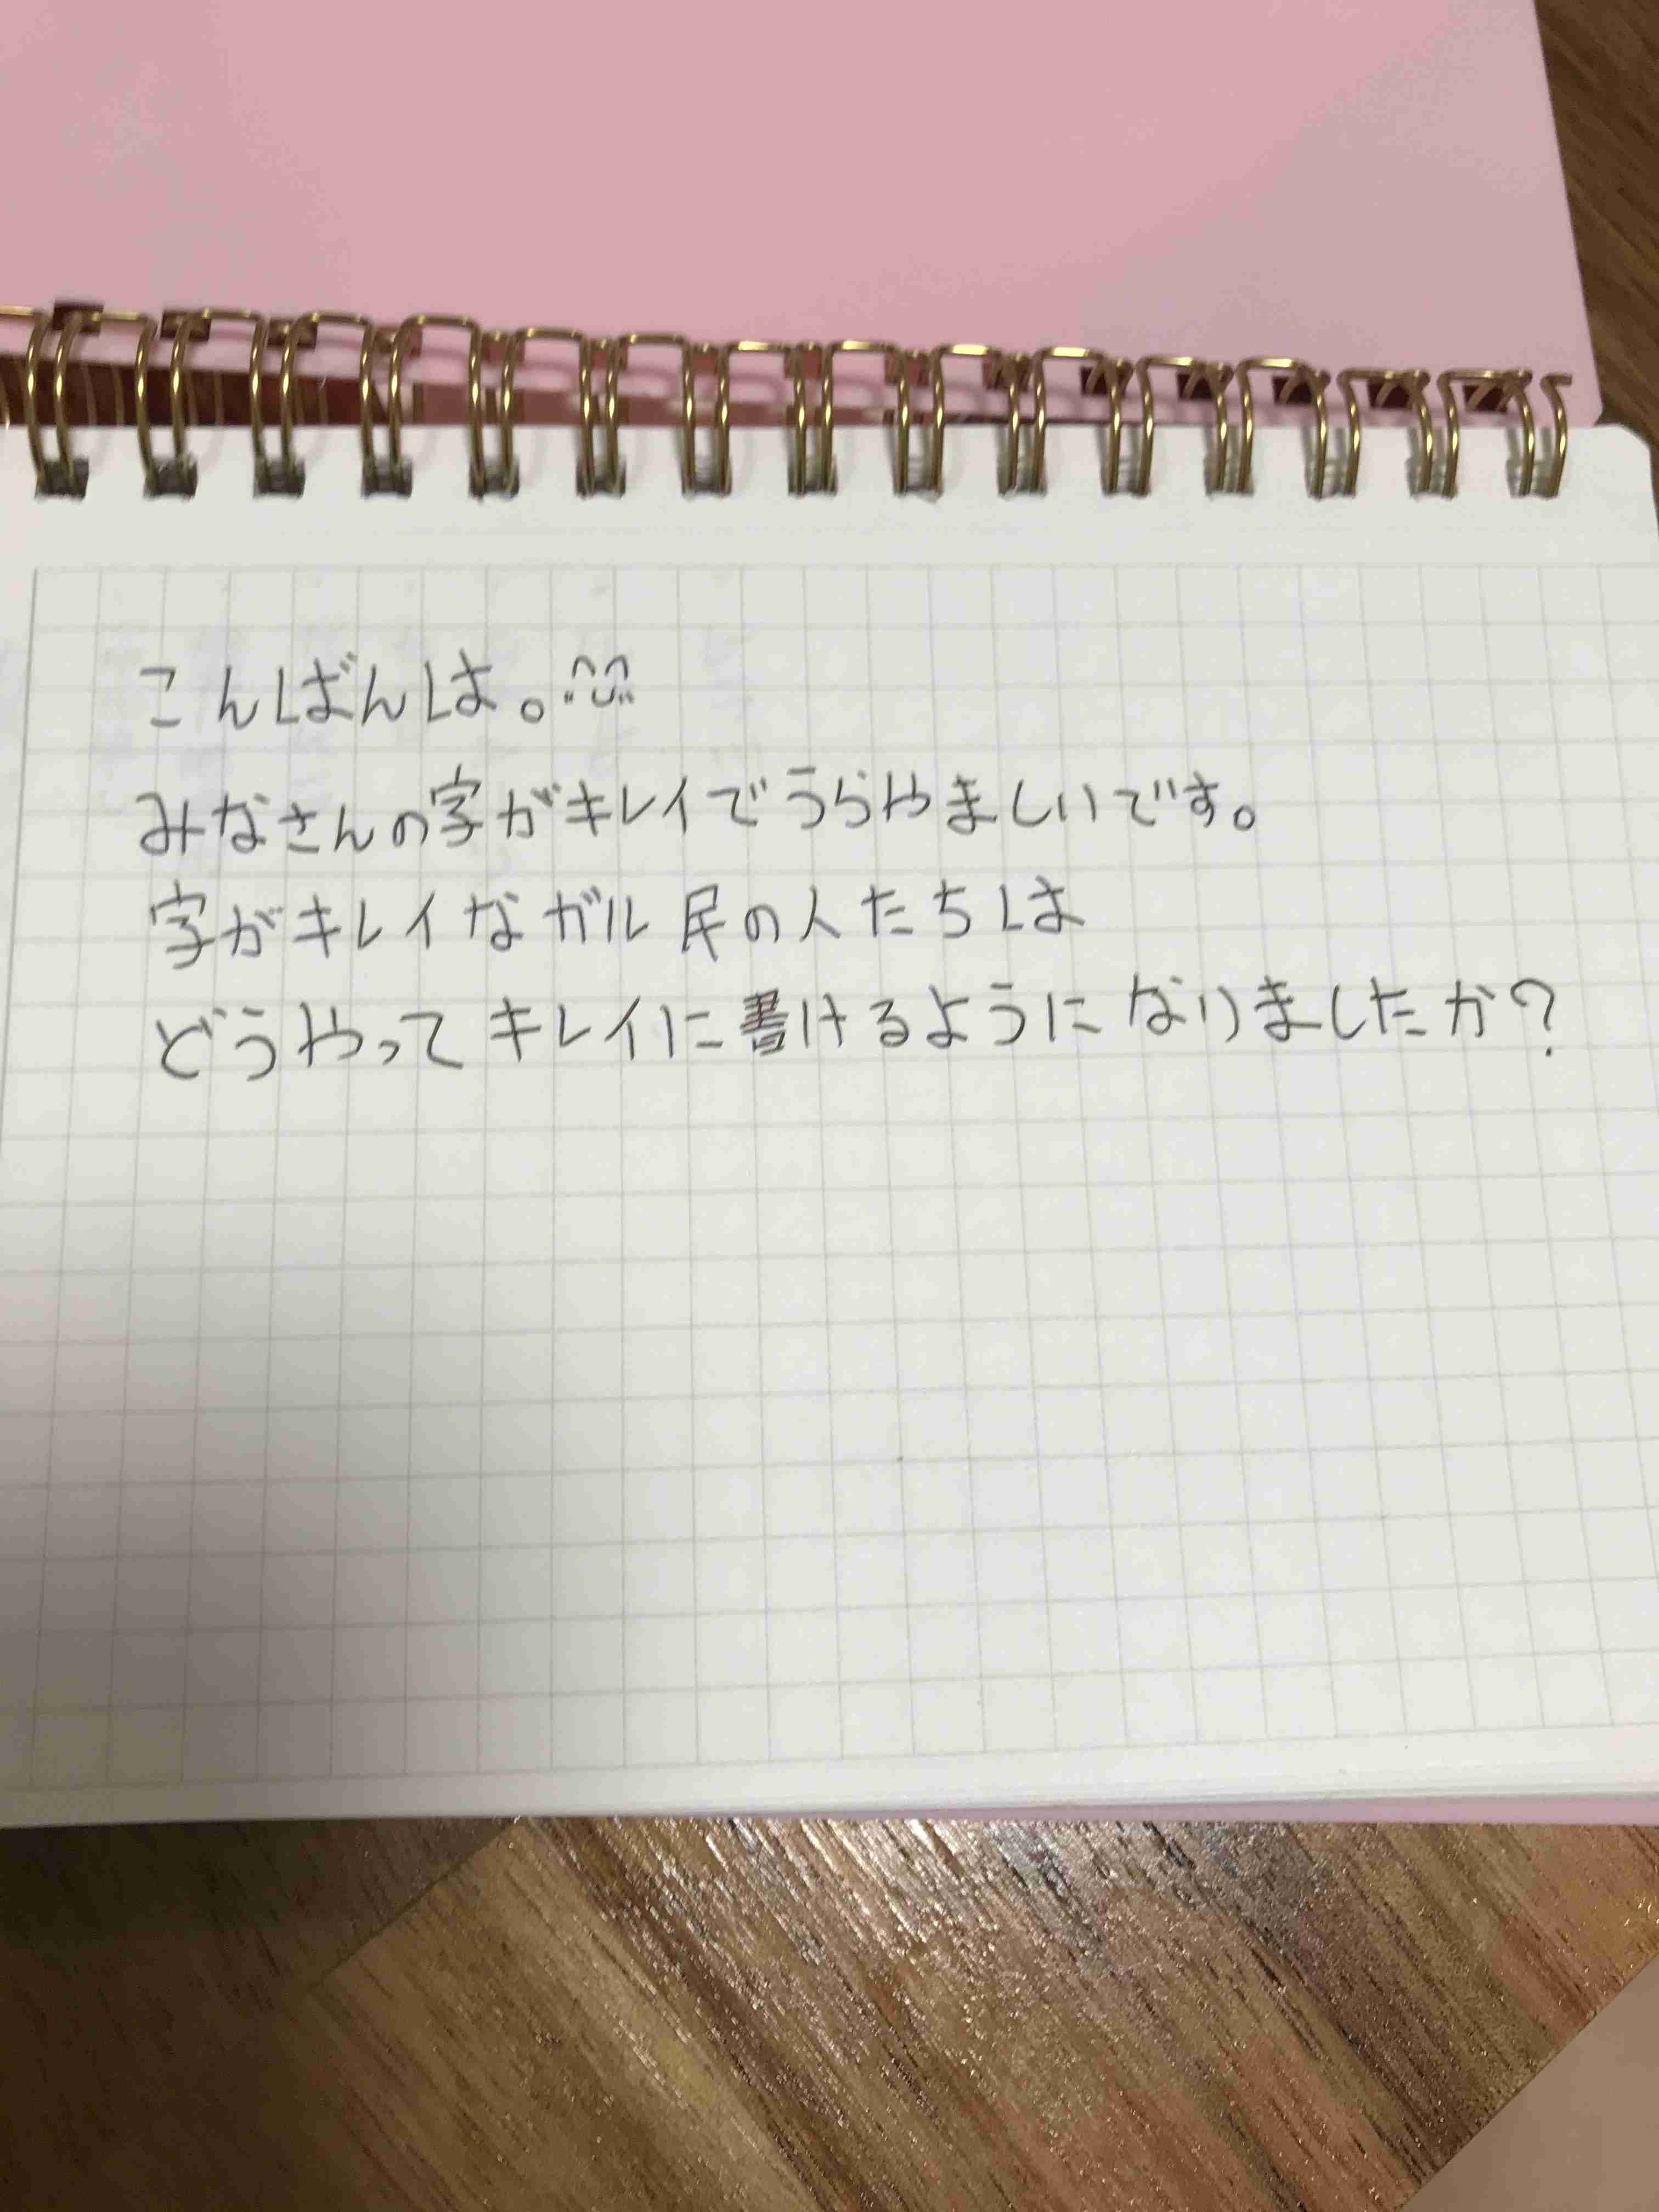 こんばんは。
みなさんの字がキレイでうらやましいです。
字がキレイなガル民の人たちは
どうやってキレイに書けるようになりましたか?